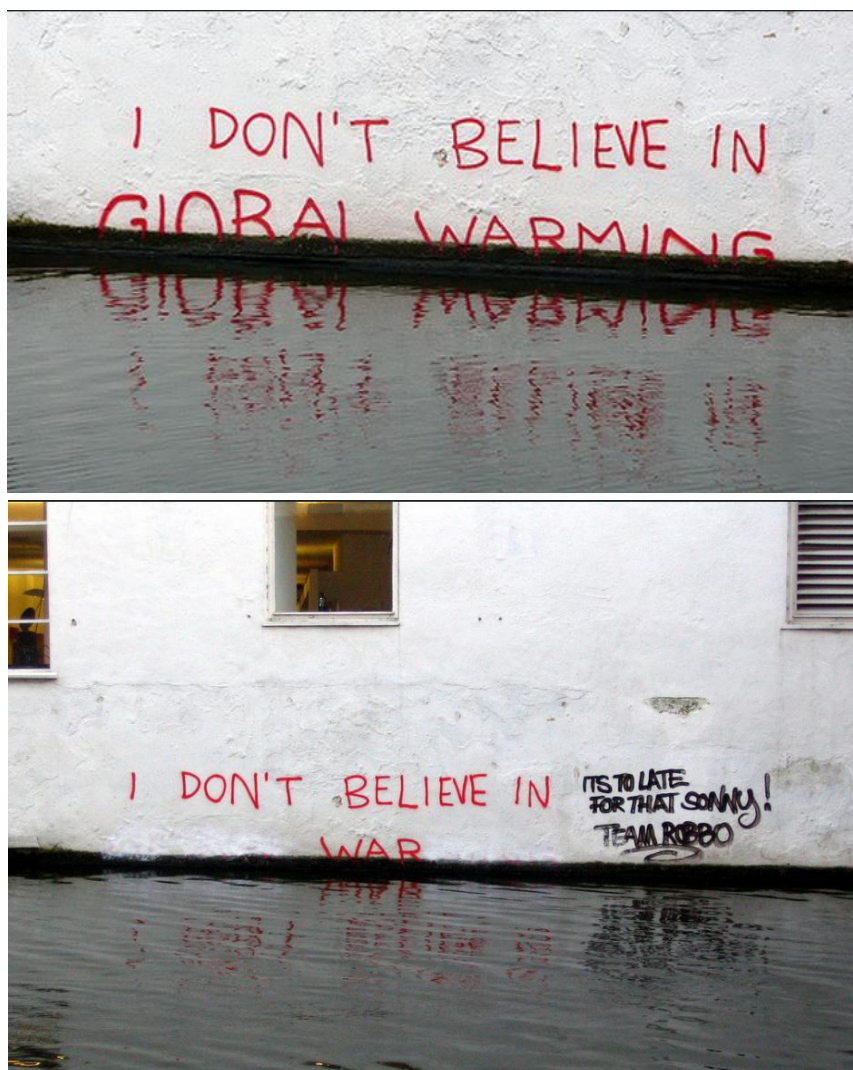 I DON'T BELIEVE IN
GLOBAL WARMING
I DON'T BELIEVE IN
WAR
ITS TO LATE
FOR THAT SONNY!
TEAM ROBBO